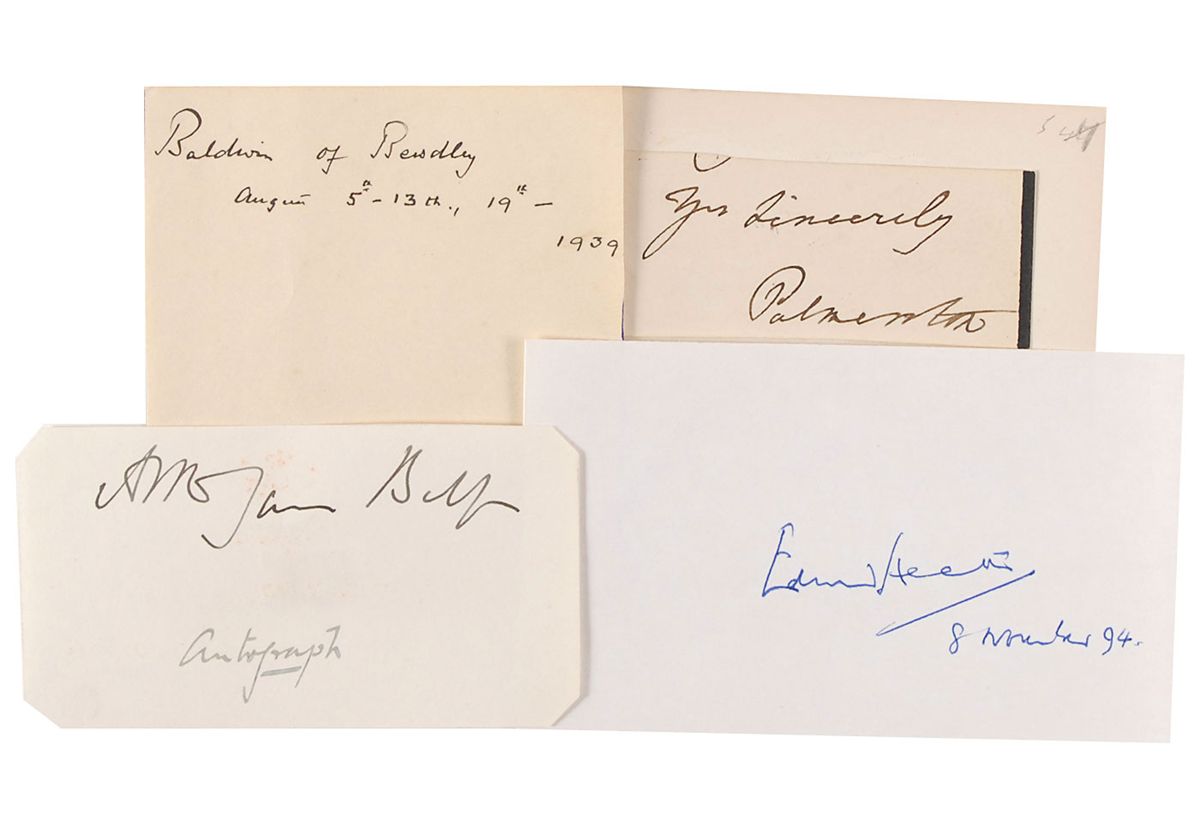 Baldwin of Bewdley
August 5th - 13th., 19th -
1939
Yrs sincerely
Palmerston
Arthur James Balfour
Autograph
Edward Heath
8 November 94.